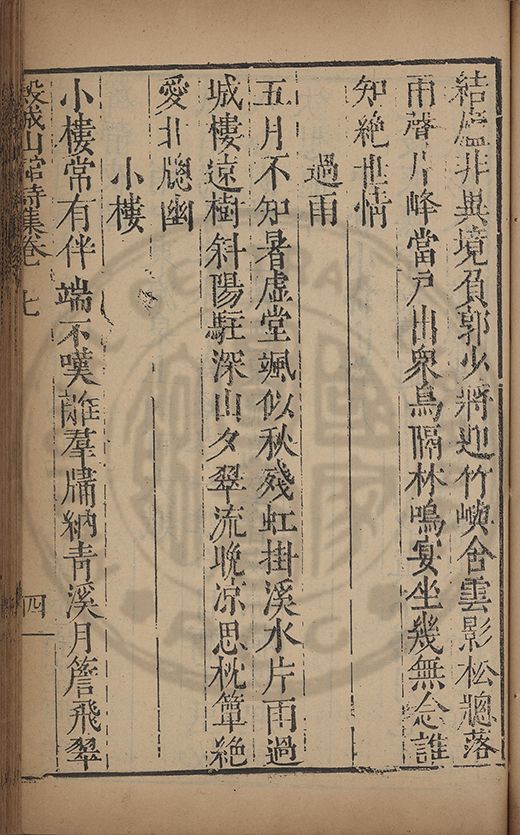 結廬非異境負郭少將迎竹嶼含雲影松牕落
雨聲片峰當戶出衆鳥隔林鳴宴坐幾無念誰
知絶世情
過雨
五月不知暑虛堂颯似秋殘虹掛溪水片雨過
城樓遠樹斜陽駐深山夕翠流晚凉思枕簟絶
愛北牕幽
小樓
小樓常有伴端不嘆離羣牗納青溪月簷飛翠
穀城山館詩集卷七
四